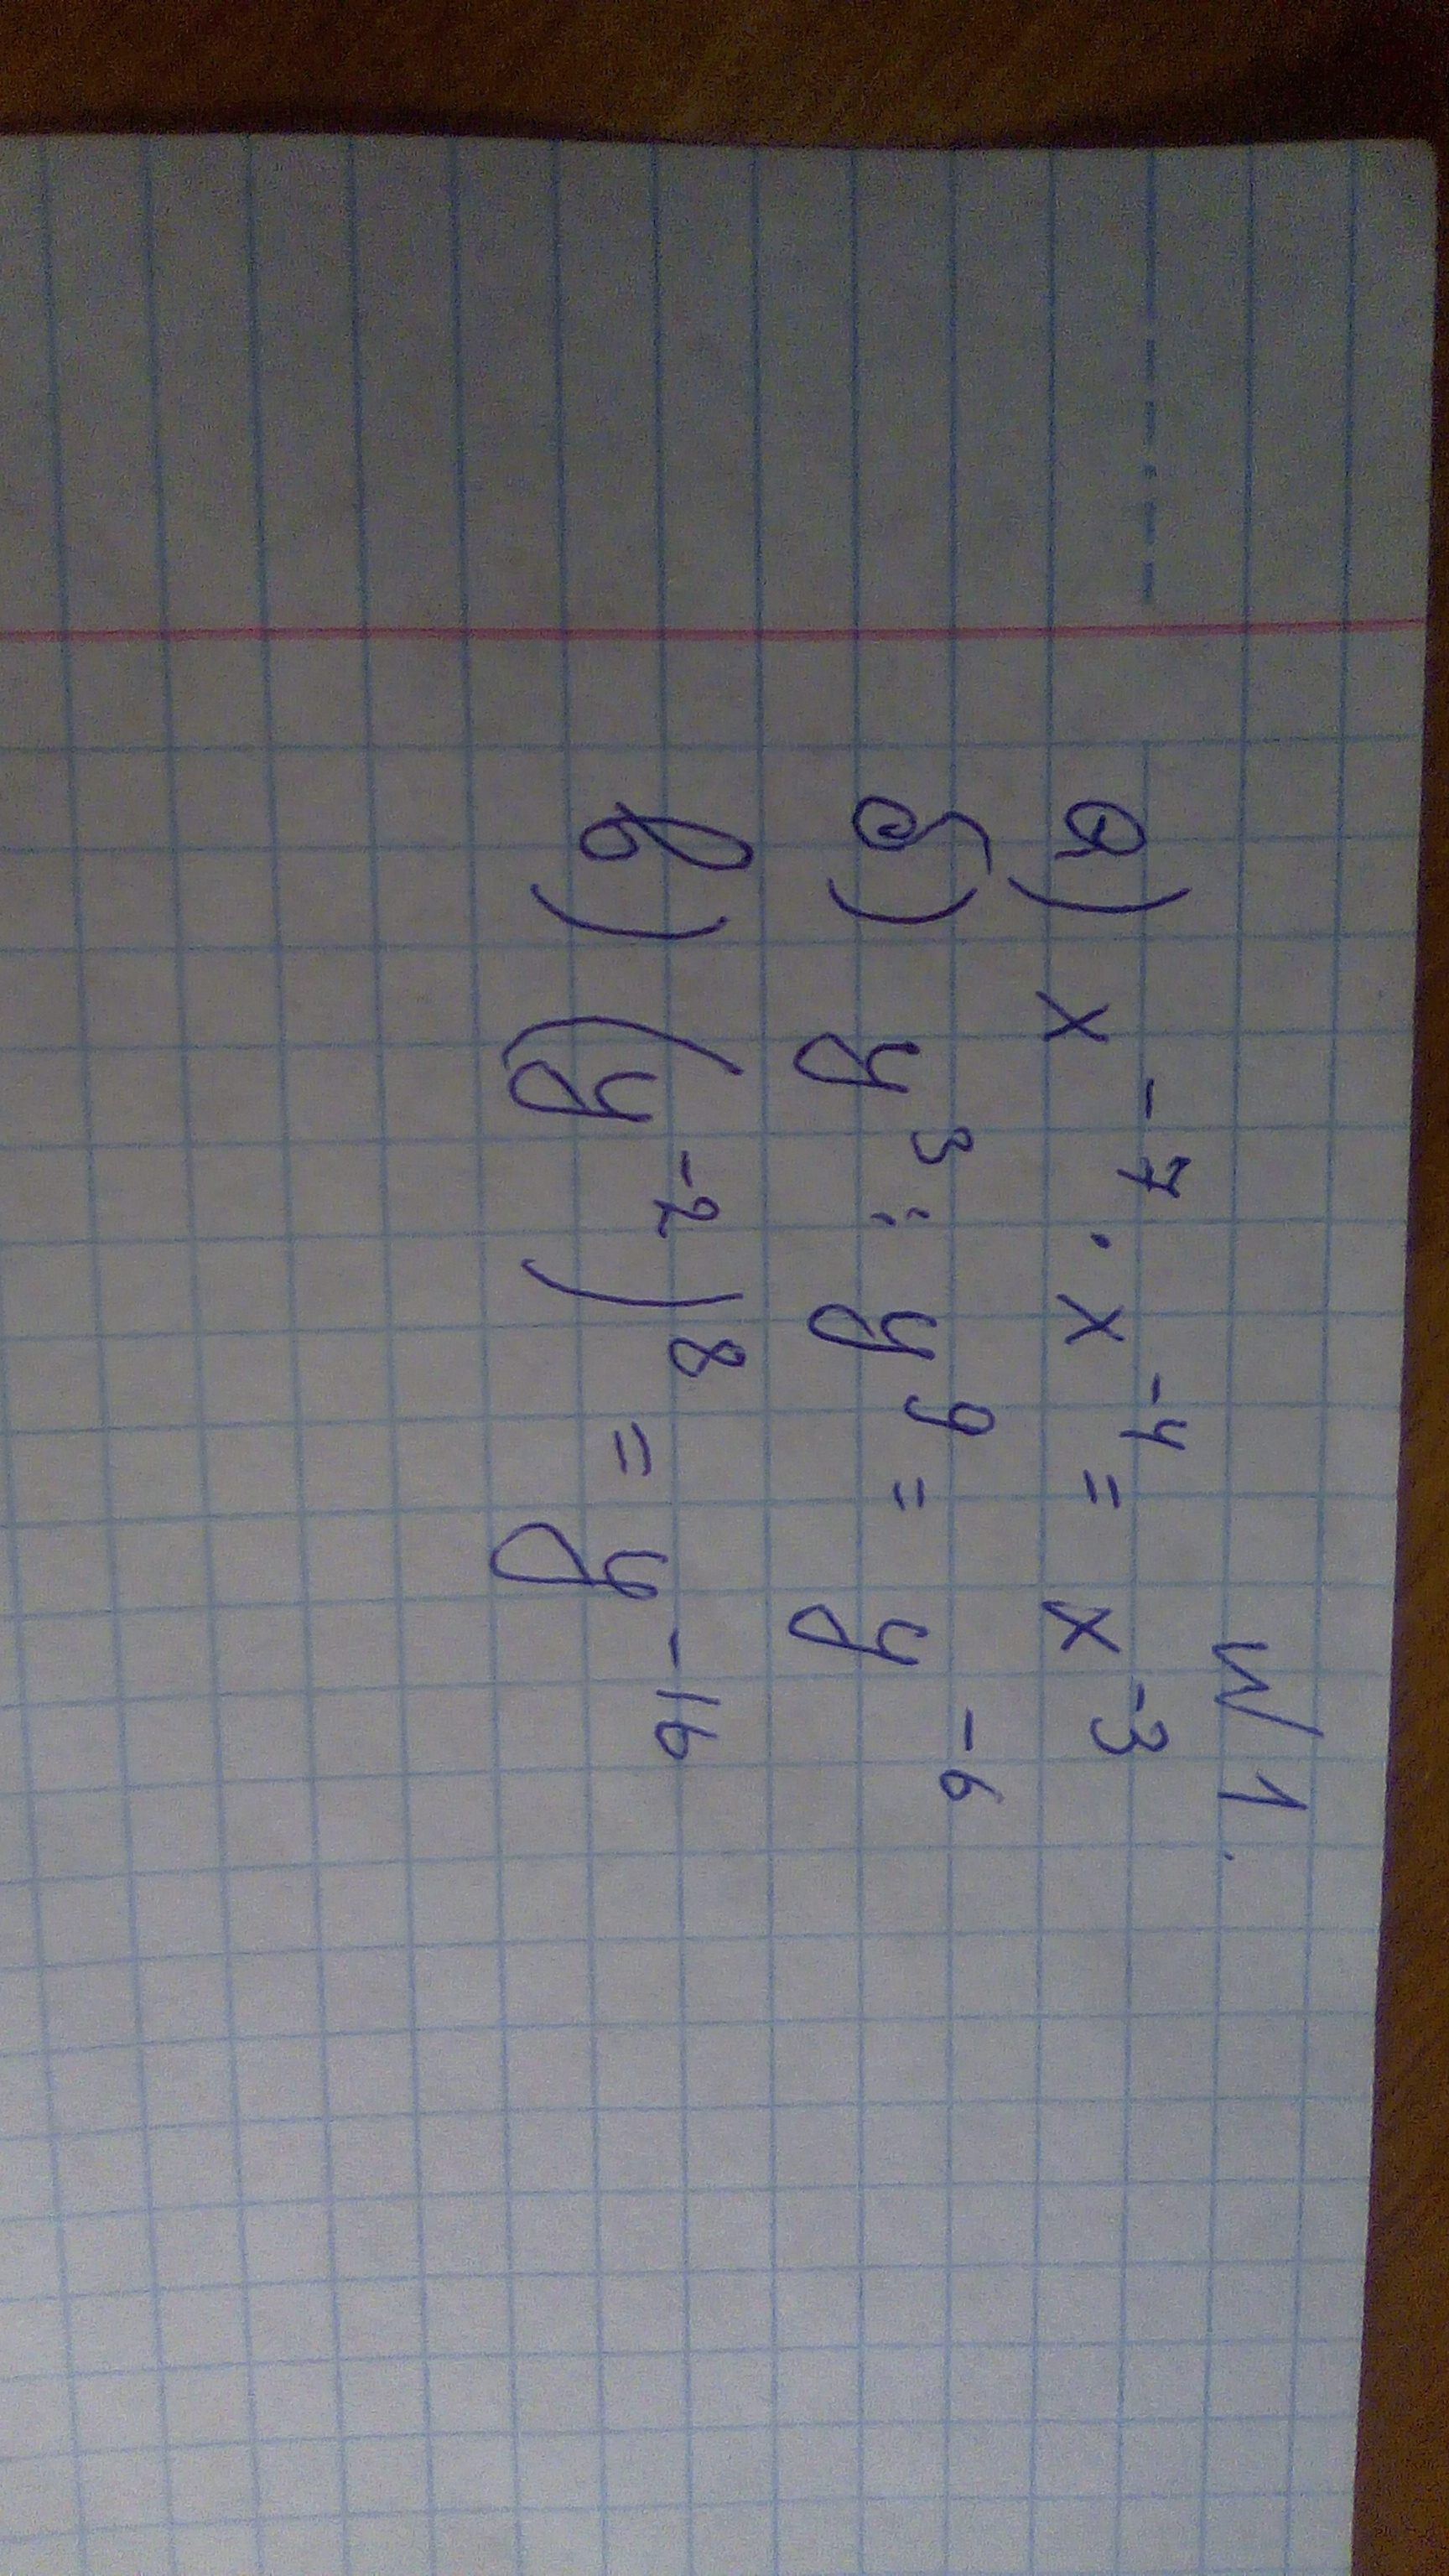 № 1.
а) x⁻⁷ · x⁻⁴ = x⁻³
б) y³ : y⁹ = y⁻⁶
в) (y⁻²)⁸ = y⁻¹⁶